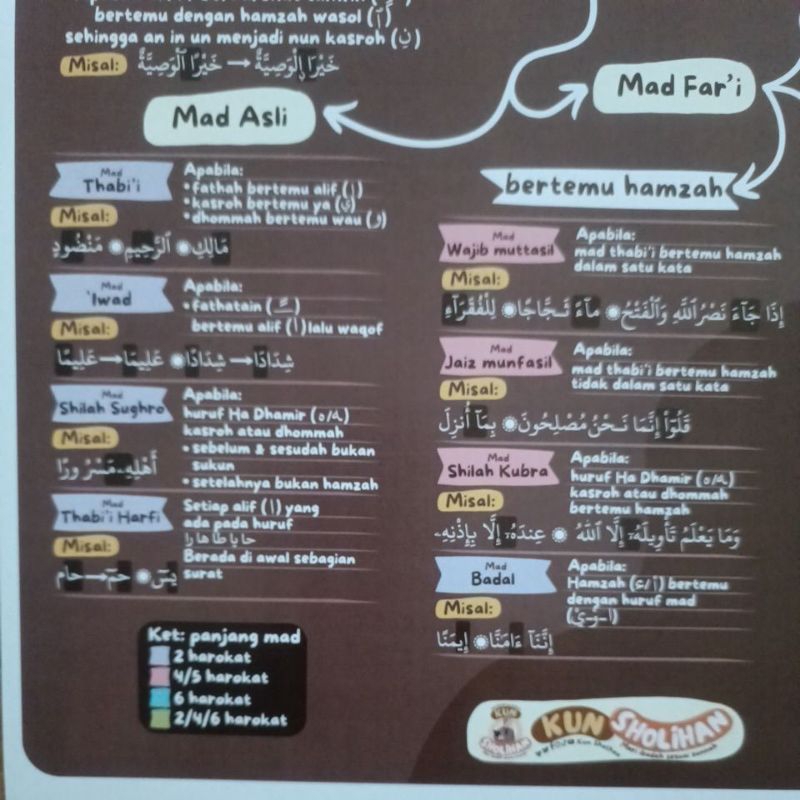 bertemu dengan hamzah wasol (ٱ)
sehingga an in un menjadi nun kasroh (نِ)
Misal: خَيْرًا ٱلْوَصِيَّةُ → خَيْرَاۨلْوَصِيَّةُ
Mad Asli
Mad
Thabi'i
Apabila:
• fathah bertemu alif (ا)
• kasroh bertemu ya (ي)
• dhommah bertemu wau (و)
Misal:
مَالِكِ ◉ ٱلرَّحِيمِ ◉ مَنْضُودٍ
Mad
'Iwad
Apabila:
• fathatain (ـً)
bertemu alif (ا) lalu waqof
Misal:
شِدَادًا → شِدَادَا ◉ عَلِيمًا → عَلِيمَا
Mad
Shilah Sughro
Apabila:
huruf Ha Dhamir (ه/ـه)
kasroh atau dhommah
• sebelum & sesudah bukan
sukun
• setelahnya bukan hamzah
Misal:
أَهْلِهِۦ مَسْرُورًا
Mad
Thabi'i Harfi
Setiap alif (ا) yang
ada pada huruf
حا يا طا ها را
Berada di awal sebagian
surat
Misal:
يسٓ ◉ حمٓ → حام
Ket: panjang mad
2 harokat
4/5 harokat
6 harokat
2/4/6 harokat
Mad Far'i
bertemu hamzah
Mad
Wajib muttasil
Apabila:
mad thabi'i bertemu hamzah
dalam satu kata
Misal:
إِذَا جَآءَ نَصْرُ ٱللَّهِ وَٱلْفَتْحُ ◉ مَآءً ثَجَّاجًا ◉ لِلْفُقَرَآءِ
Mad
Jaiz munfasil
Apabila:
mad thabi'i bertemu hamzah
tidak dalam satu kata
Misal:
قَالُوٓا۟ إِنَّمَا نَحْنُ مُصْلِحُونَ ◉ بِمَآ أُنزِلَ
Mad
Shilah Kubra
Apabila:
huruf Ha Dhamir (ه/ـه)
kasroh atau dhommah
bertemu hamzah
Misal:
وَمَا يَعْلَمُ تَأْوِيلَهُۥٓ إِلَّا ٱللَّهُ ◉ عِندَهُۥٓ إِلَّا بِإِذْنِهِۦ
Mad
Badal
Apabila:
Hamzah (أ/ء) bertemu
dengan huruf mad
(ا-و-ي)
Misal:
إِنَّنَآ ءَامَنَّا ◉ إِيمَنًا
KUN SHOLIHAN